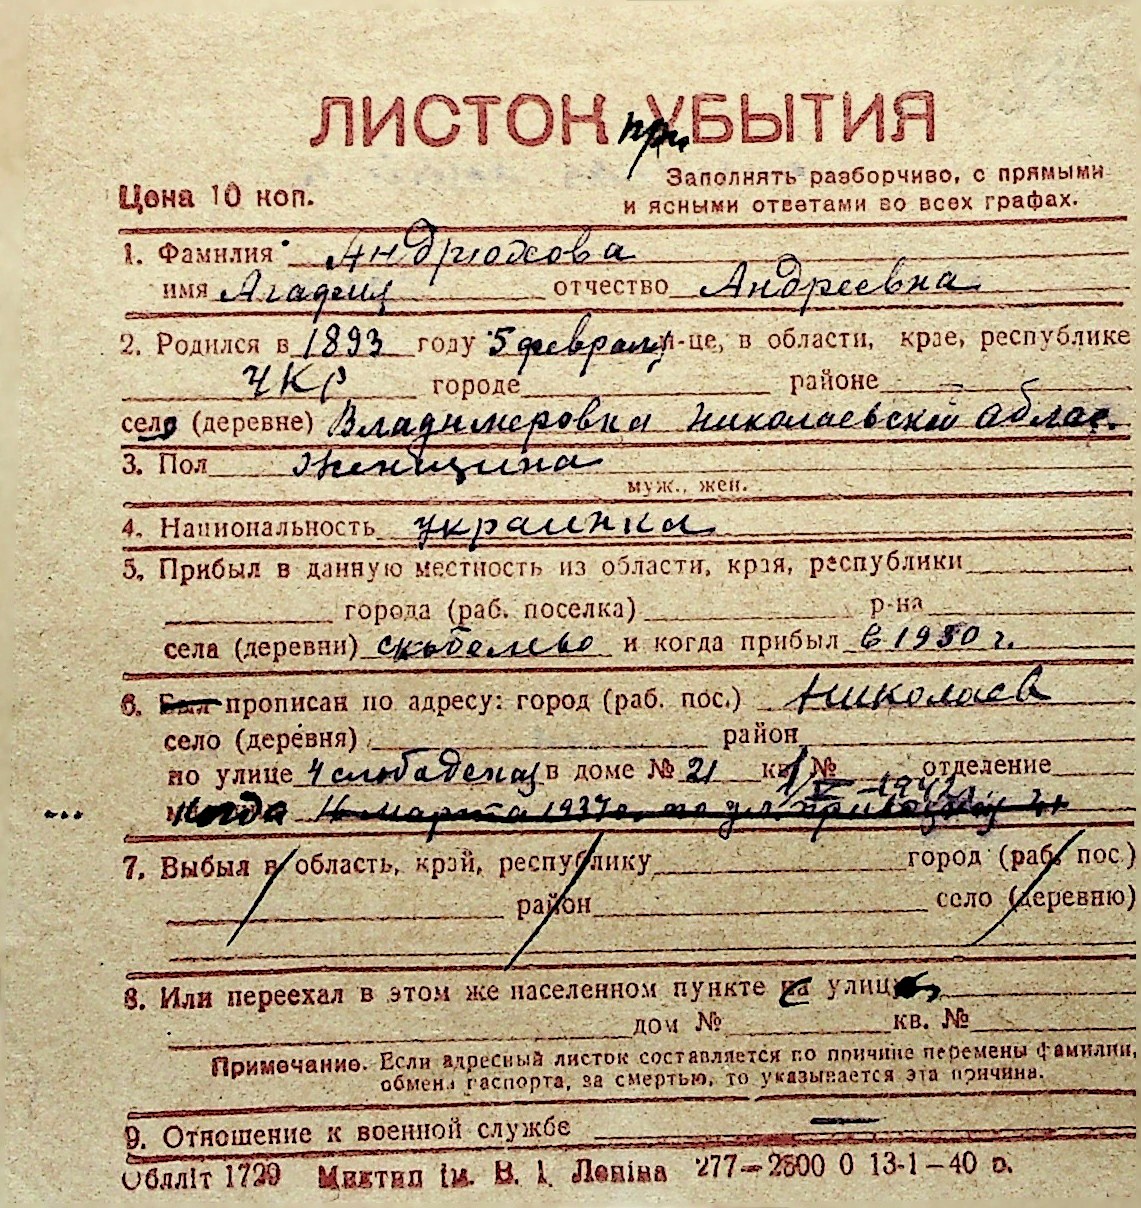 ЛИСТОК при УБЫТИЯ
Цена 10 коп.
Заполнять разборчиво, с прямыми
и ясными ответами во всех графах.
1. Фамилия Андрюхова
имя Агафия отчество Андреевна
2. Родился в 1893 году 5 февраля м-це, в области, крае, республике
УКР городе районе
село (деревне) Владимировка Николаевской Облас.
3. Пол Женщина
муж., жен.
4. Национальность украинка
5. Прибыл в данную местность из области, края, республики
города (раб. поселка) р-на
села (деревни) и когда прибыл в 1930 г.
6. Был прописан по адресу: город (раб. пос.) Николаев
село (деревня) район
по улице 4 слободская в доме № 21 кв. № отделение
1/V - 1942
когда 14 марта 1937 г. по ул.
7. Выбыл в область, край, республику город (раб. пос.)
район село (деревню)
8. Или переехал в этом же населенном пункте с улицы
дом № кв. №
Примечание. Если адресный листок составляется по причине перемены фамилии,
обмена паспорта, за смертью, то указывается эта причина.
9. Отношение к военной службе —
Обліт 1729 Миктип ім. В. І. Леніна 277—2800 0 13-1—40 р.